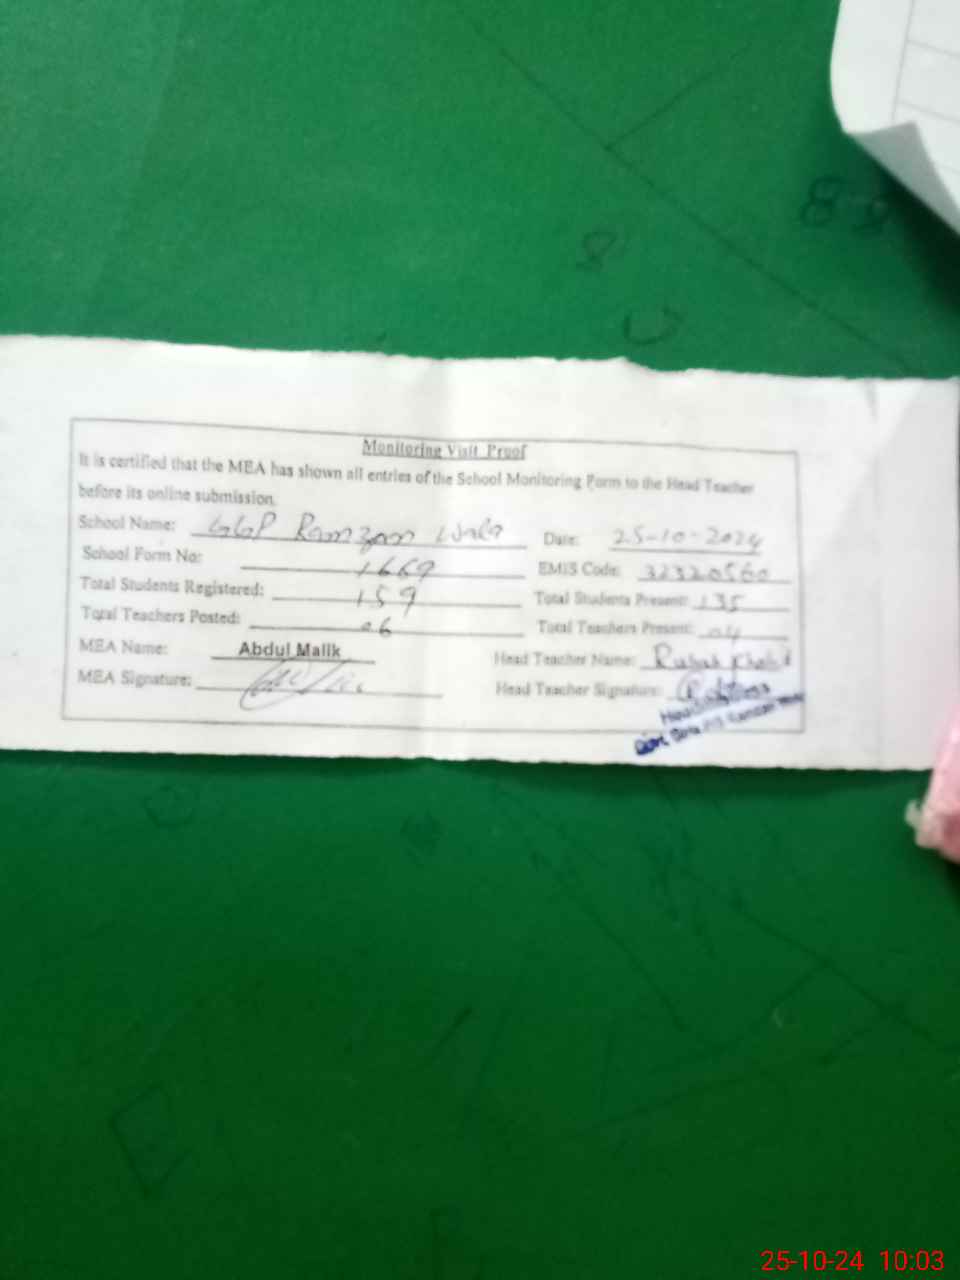 Monitoring Visit Proof
It is certified that the MEA has shown all entries of the School Monitoring Form to the Head Teacher
before its online submission.
School Name: GGP Ramzan Wala Date: 25-10-2024
School Form No: 1669 EMIS Code: 32320560
Total Students Registered: 159 Total Students Present: 135
Total Teachers Posted: 06 Total Teachers Present: 04
MEA Name: Abdul Malik Head Teacher Name: Khalid
MEA Signature: Head Teacher Signature:
88
8
25-10-24 10:03